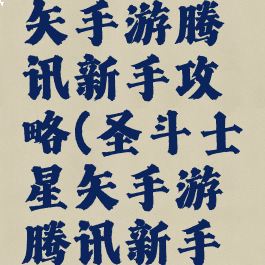 矢手游腾
讯新手攻
略(圣斗士
星矢手游
腾讯新手